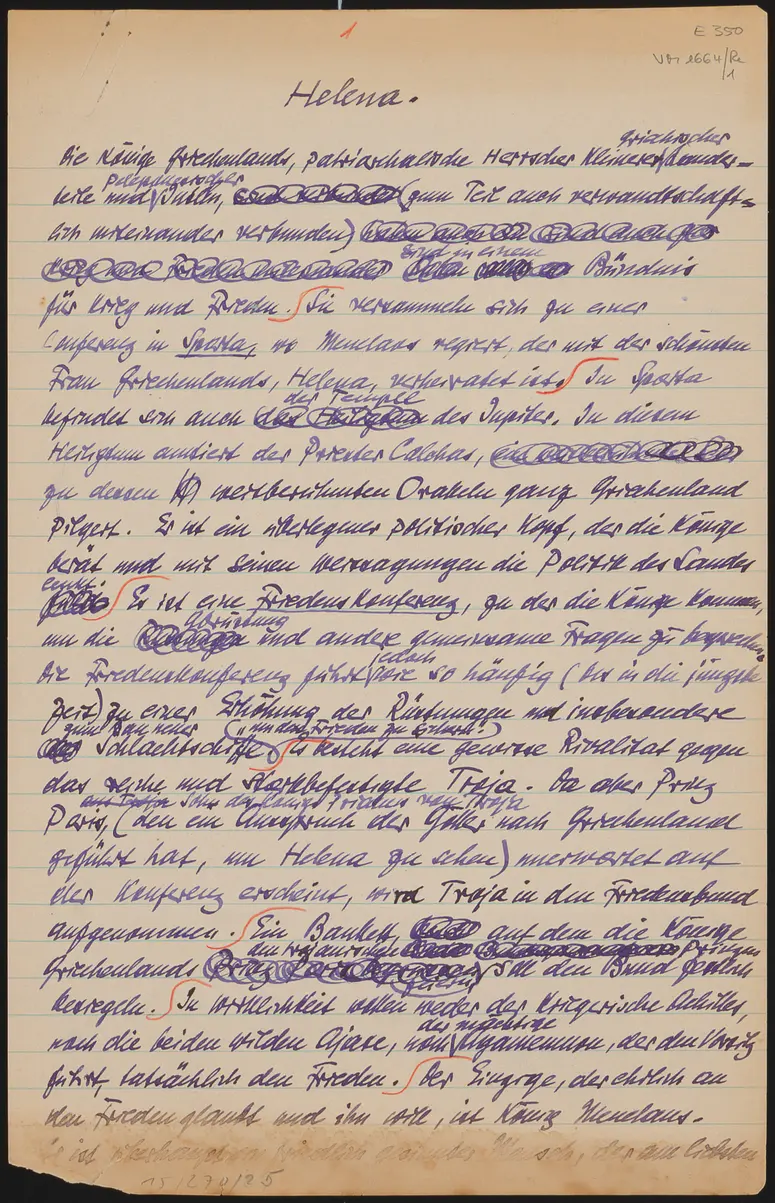 1
E 350
VM 1664/Re
1
Helena.
griechischer
Die Könige Griechenlands, patriarchalische Herrscher kleinerer Länder=
peloponesischer
teile und Inseln, (zum Teil auch verwandtschaft=
lich miteinander verbunden)
sind in einem
Bündnis
für Krieg und Frieden. Sie versammeln sich zu einer
Conferenz in Sparta, wo Menelaos regiert, der mit der schönsten
Frau Griechenlands, Helena, verheiratet ist. In Sparta
der Tempel
befindet sich auch des Jupiter. In diesem
Heiligtum amtiert der Priester Calchas,
zu dessen weitberühmten Orakeln ganz Griechenland
pilgert. Er ist ein überlegener politischer Kopf, der die Könige
berät und mit seinen Weissagungen die Politik des Landes
lenkt.
Es ist eine Friedenskonferenz, zu der die Könige kommen,
Abrüstung
um die und andere gemeinsame Fragen zu besprechen.
jedoch
Die Friedenskonferenz führt wie so häufig (bis in die jüngste
Zeit) zu einer Erhöhung der Rüstungen und insbesondere
zum Bau neuer („um den Frieden zu sichern“)
Schlachtschiffe. Es besteht eine gewisse Rivalität gegen
das reiche und starkbefestigte Troja. Da aber Prinz
Sohn des Königs Priamus von Troja
Paris, (den ein Ausspruch der Götter nach Griechenland
geführt hat, um Helena zu sehen) unerwartet auf
der Konferenz erscheint, wird Troja in den Friedensbund
aufgenommen. Ein Bankett, auf dem die Könige
den trojanischen Prinzen
Griechenlands feiern, soll den Bund festlich
besiegeln. In Wirklichkeit wollen weder der kriegerische Achilles,
der mächtige
noch die beiden wilden Ajaxe, noch Agamemnon, der den Vorsitz
führt, tatsächlich den Frieden. Der Einzige, der ehrlich an
den Frieden glaubt und ihn will, ist König Menelaus.
Er ist überhaupt ein friedlich Mensch, der am liebsten
15/270/25